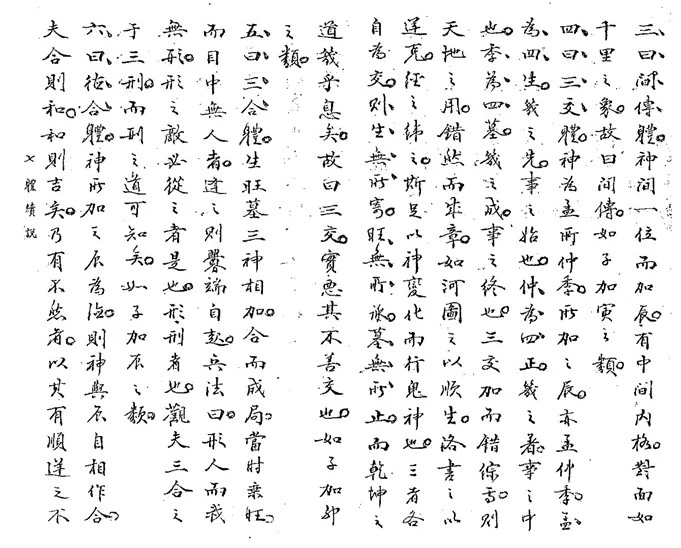 三曰間傳體神間一位而加辰有中間內格對面如
千里之象故曰間傳如子加寅之類
四曰三交體神為孟所仲季所加之辰亦孟仲季孟
為四生幾之先事之始也仲為四正幾之着事之中
也季為四墓幾之成事之終也三交加而錯綜焉則
天地之用錯然而成章如河圖之以順生洛書之以
逆克經之緯之斯足以神變化而行鬼神也三者各
自為交則生無所寄旺無所承墓無所止而乾坤之
道幾乎息矣故曰三交實惡其不善交也如子加卯
之類
五曰三合體生旺墓三神相加合而成局當時乘旺
而目中無人者逢之則釁端自起兵法曰形人而我
無形形之敵必從之者是也形刑者也觀夫三合之
于三刑而刑之道可知矣如子加辰之類
六曰德合體神所加之辰為德則神與辰自相作合
夫合則和和則吉矣乃有不然者以其有順逆之不
體續說